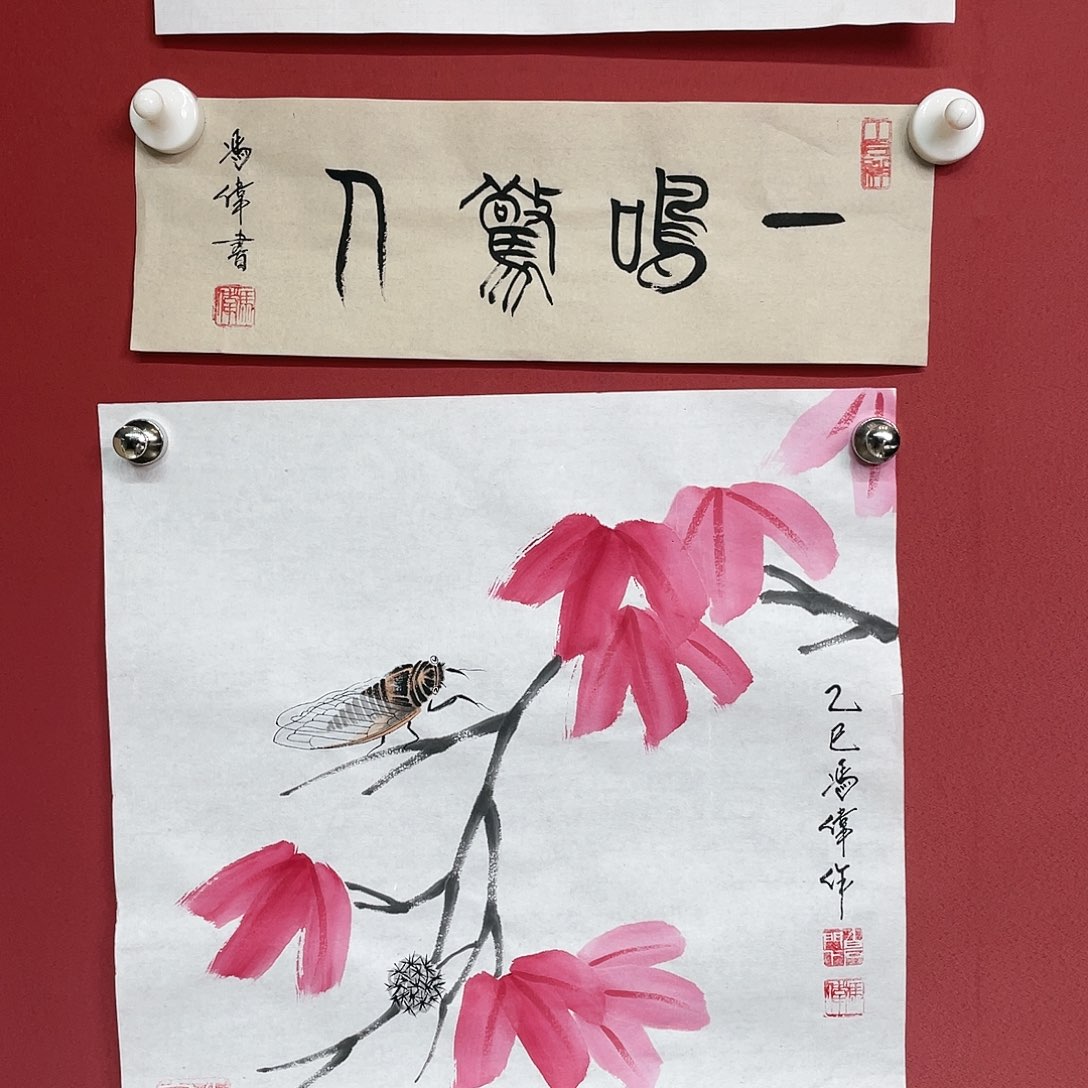 一鳴驚人
馮偉書
乙巳馮偉作